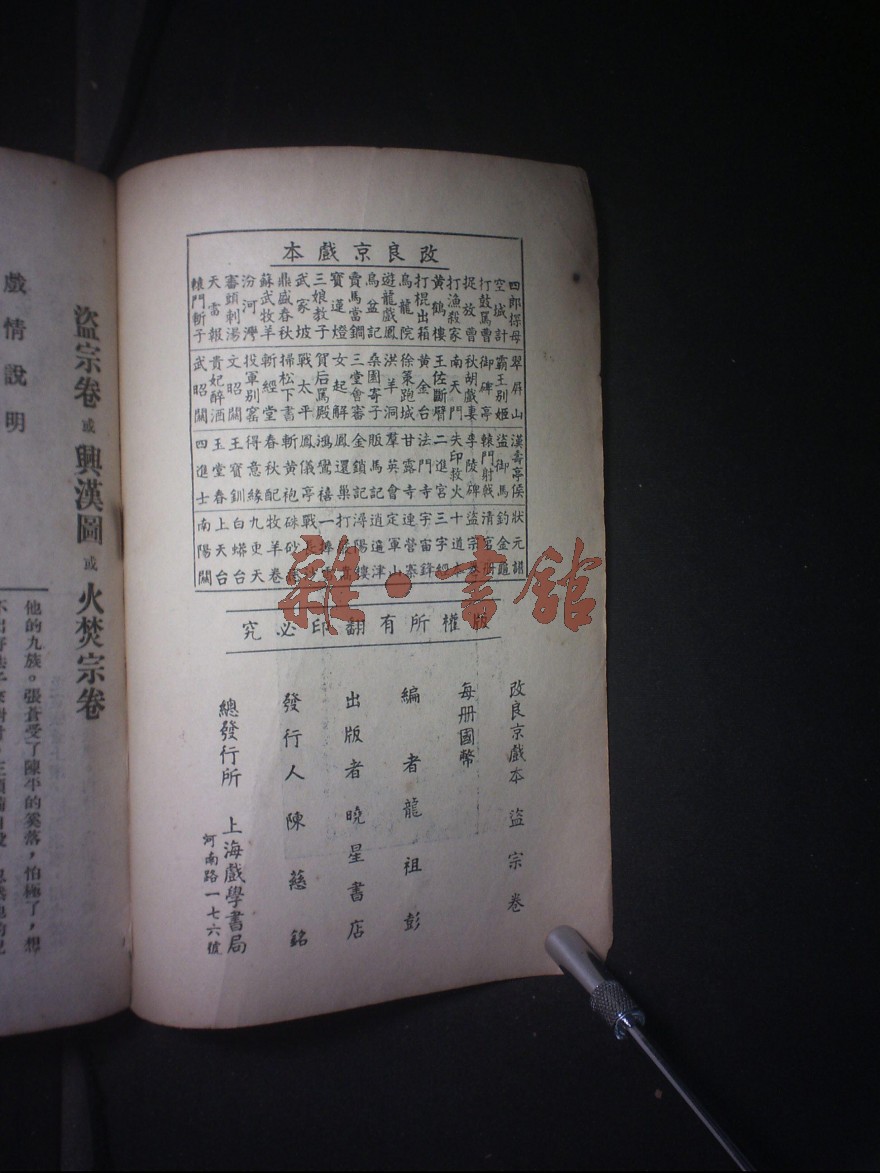 改良京戲本
四郎探母
空城計
打鼓罵曹
捉放曹
打漁殺家
黃鶴樓
打棍出箱
烏龍院
遊龍戲鳳
烏盆記
賣馬當鐧
寶蓮燈
三娘教子
武家坡
鼎盛春秋
蘇武牧羊
汾河灣
審頭刺湯
天雷報
轅門斬子
翠屏山
霸王別姬
御碑亭
秋胡戲妻
南天門
王佐斷臂
黃金台
徐策跑城
洪羊洞
桑園寄子
三堂會審
女起解
賀后罵殿
戰太平
掃松下書
斬經堂
投軍別窰
文昭關
貴妃醉酒
武昭關
漢壽亭侯
盜御馬
轅門射戟
李陵碑
失印救火
二進宮
法門寺
甘露寺
群英會
販馬記
金鎖記
鳳還巢
鴻鸞禧
鳳儀亭
斬黃袍
春秋配
得意緣
王寶釧
玉堂春
四進士
狀元譜
釣金龜
清官冊
盜宗卷
十道本
三字經
宇宙鋒
連營寨
定軍山
逍遙津
潯陽樓
打
一捧雪
戰長沙
硃砂
牧羊卷
九更天
白蟒台
上天台
南陽關
版權所有翻印必究
改良京戲本 盜宗卷
每冊國幣
編者龍祖彭
出版者曉星書店
發行人陳慈銘
總發行所 上海戲學書局
河南路一七六號
雜·書館
盜宗卷或興漢圖或火焚宗卷
戲情說明
他的九族。張蒼受了陳平的奚落，怕極了，想